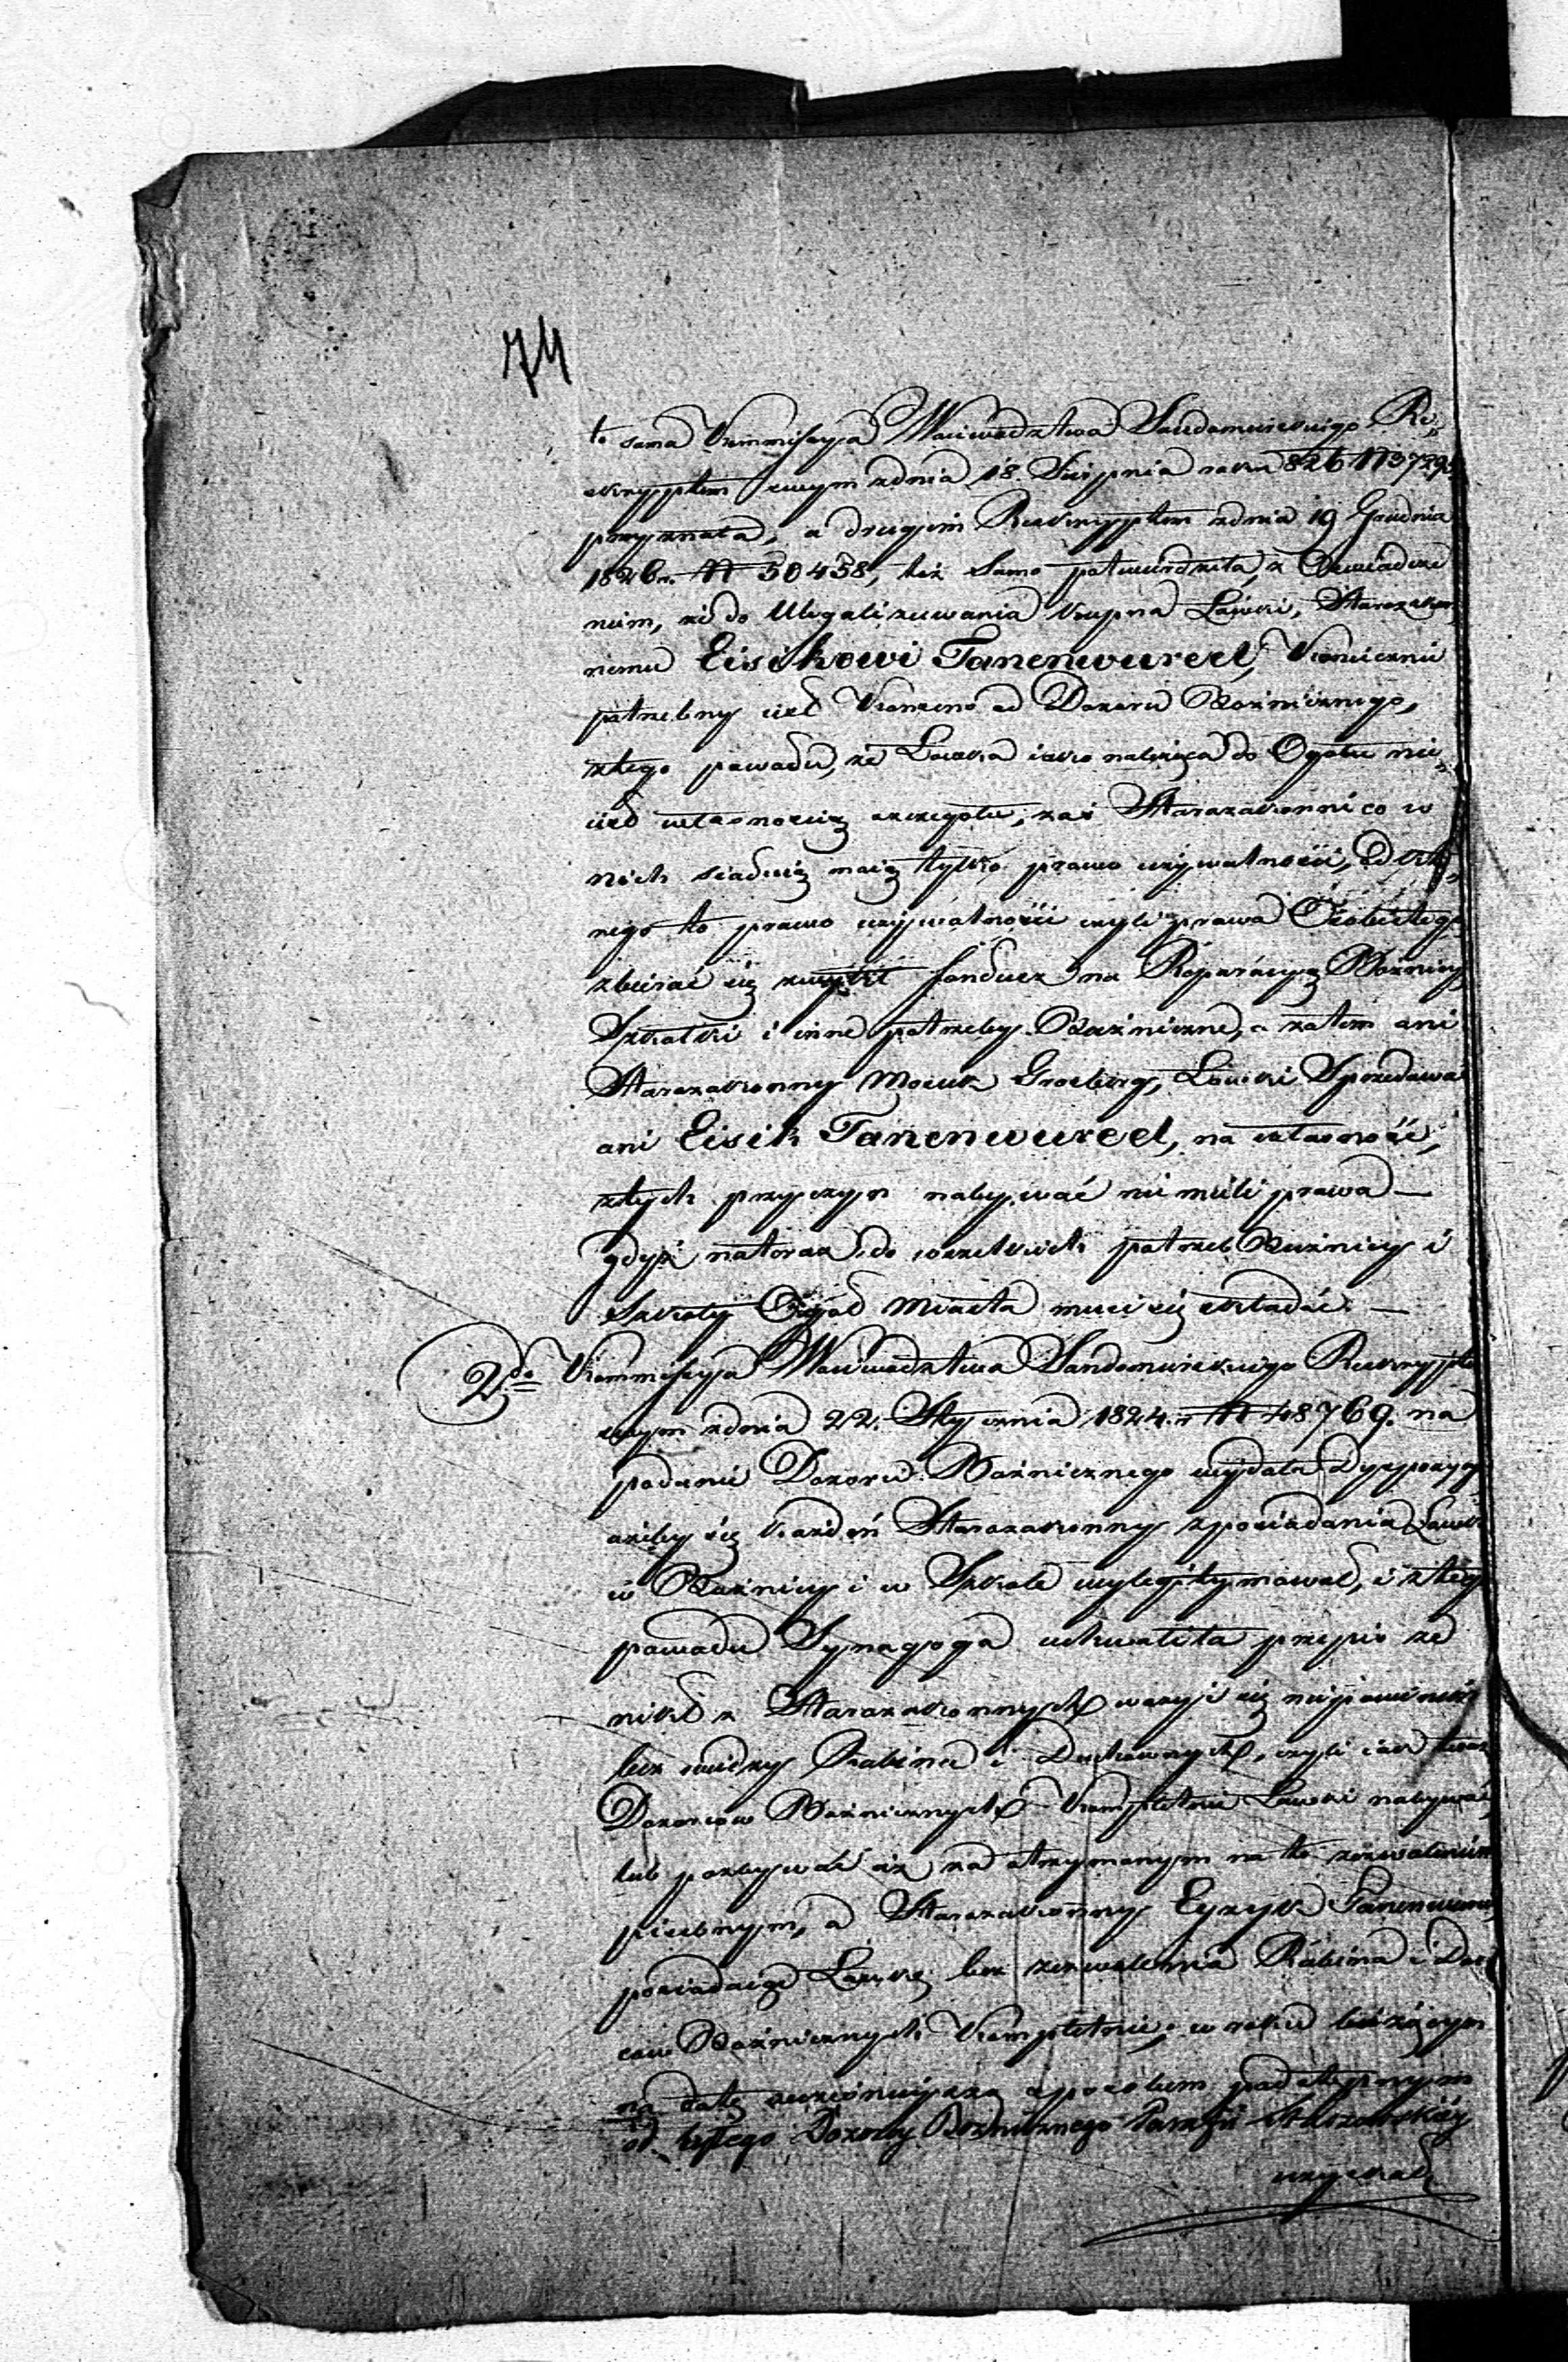 74
to sama Kommissya Woiewodztwa Sandomirskiego Re„
skryptem swym zdnia 18. Sierpnia roku 826 N 3729
przyznała, a drugim Reskryptem zdnia 19 Grudnia
1826r. N 50458, też samo potwierdziła, z Oswiadcze
niem, że do Ulegalizowania kupna Ławki, Starozakon
nemu Eisikowi Tanenwurcel, koniecznie
potrzebny iest konsens od Dozoru Bożniczego,
ztego powodu, że Ławka iako należąca do Ogołu nie„
iest własnością szczegołu, zaś Starozakonni co w
nich siaduią maią tylko prawo używalności, od któ„
rego to prawo używalności czyli prawa
zbierać się zwykł fundusz na Reparacyą Bożnicy
Szkołki i inne potrzeby Bożniczne, a zatem ani
Starozakonny Moszek Grosberg, Ławki Sprzedawać
ani Eisik Tanenwurcel, na własność,
ztych przyczyn nabywać nie mieli prawa —
gdyż natoraz do wszelkich potrzeb Bożnicy i
Szkoły Ogół Miasta musi się składać. —
2do Kommissya Woiewodztwa Sandomirskiego Reskryptem
swym zdnia 22. Stycznia 1824.r N 48769. na
podanie Dozoru Bożnicznego wydała Dyspozycyą
ażeby się każden Starozakonny zposiadania Ławki
w Bożnicy i w Szkole wylegitymował, i ztego
powodu Synagoga uchwaliła przepis że
nikt z Starozakonnych waży się
bez wiedzy Rabina i Duchownych, czyli iak teraz
Dozorców Bożnicznych kompletnie Ławki nabywać,
lub pozbywać aż za otrzymanym na to zezwoleniem
pisebnym, a Starozakonny Eyzyk Tanenwurcel
posiadaiąc Ławkę bez zezwolenia Rabina i Dozor
ców Bożnicznych kompletnie, w roku bieżącym
na datę wcześnieyszą sposobem podstępnym
od byłego Dozoru Bożnicznego Parafii
uzyskał